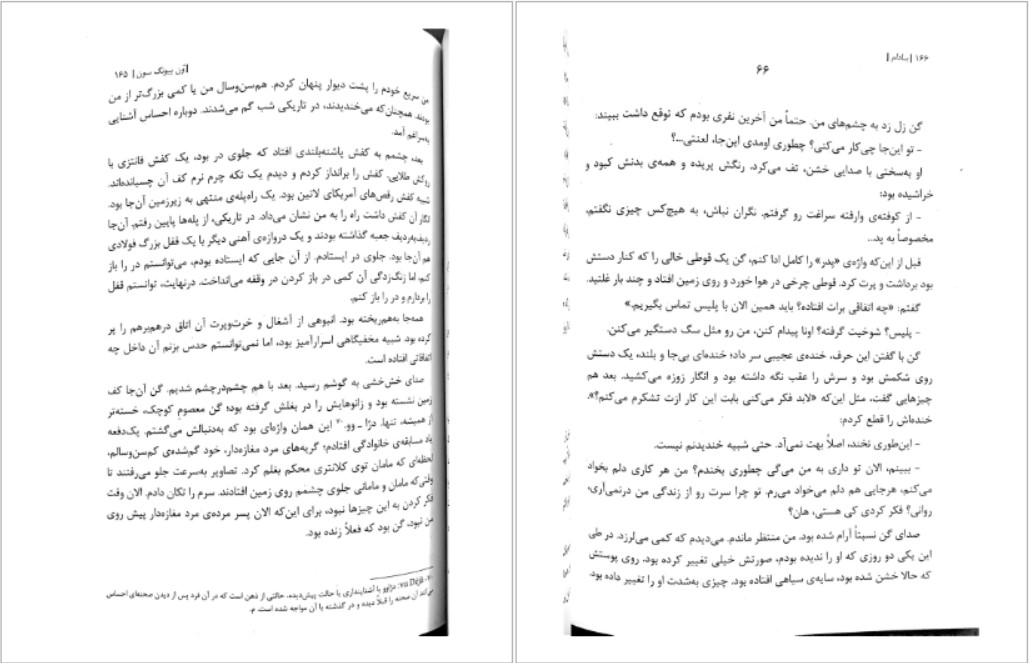 آون پیونگ سون | ۱۶۵
من سریع خودم را پشت دیوار پنهان کردم. هم‌سن‌وسال من یا کمی بزرگ‌تر از من
بودند. همچنان‌که می‌خندیدند، در تاریکی شب گم می‌شدند. دوباره احساس آشنایی
به‌سراغم آمد.
بعد، چشمم به کفش پاشنه‌بلندی افتاد که جلوی در بود، یک کفش فانتزی با
روکش طلایی. کفش را برانداز کردم و دیدم یک تکه چرم نرم کف آن چسبانده‌اند.
شبیه کفش رقص‌های آمریکای لاتین بود. یک راه‌پله‌ی منتهی به زیرزمین آن‌جا بود.
انگار آن کفش داشت راه را به من نشان می‌داد. در تاریکی، از پله‌ها پایین رفتم. آن‌جا
ردیف‌به‌ردیف جعبه گذاشته بودند و یک دروازه‌ی آهنی دیگر با یک قفل بزرگ فولادی
هم آن‌جا بود. جلوی در ایستادم. از آن جایی که ایستاده بودم، می‌توانستم در را باز
کنم، اما زنگ‌زدگی آن کمی در باز کردن در وقفه می‌انداخت. درنهایت، توانستم قفل
را بردارم و در را باز کنم.
همه‌جا به‌هم‌ریخته بود. انبوهی از آشغال و خرت‌وپرت آن اتاق درهم‌برهم را پر
کرده بود. شبیه مخفیگاهی اسرارآمیز بود، اما نمی‌توانستم حدس بزنم آن داخل چه
اتفاقاتی افتاده است.
صدای خش‌خشی به گوشم رسید. بعد با هم چشم‌درچشم شدیم. گن آن‌جا کف
زمین نشسته بود و زانوهایش را در بغلش گرفته بود؛ گن معصوم کوچک، خسته‌تر
از همیشه، تنها. دژا ـ وو.۲۰ این همان واژه‌ای بود که به‌دنبالش می‌گشتم. یک‌دفعه
یاد مسابقه‌ی خانوادگی افتادم؛ گریه‌های مرد مغازه‌دار، خود گم‌شده‌ی کم‌سن‌وسالم،
لحظه‌ای که مامان توی کلانتری محکم بغلم کرد. تصاویر به‌سرعت جلو می‌رفتند تا
وقتی‌که مامان و مامانی جلوی چشمم روی زمین افتادند. سرم را تکان دادم. الان وقت
فکر کردن به این چیزها نبود، برای این‌که الان پسر مرده‌ی مرد مغازه‌دار پیش روی
من نبود، گن بود که فعلاً زنده بود.
vu Déjà: دژاوو یا آشناپنداری یا حالت پیش‌دیده، حالتی از ذهن است که در آن فرد پس از دیدن صحنه‌ای احساس
می‌کند آن صحنه را قبلاً دیده و در گذشته با آن مواجه شده است. م.
۱۶۶ | بادام |
۶۶
گن زل زد به چشم‌های من. حتماً من آخرین نفری بودم که توقع داشت ببیند:
- تو این‌جا چی‌کار می‌کنی؟ چطوری اومدی این‌جا، لعنتی...؟
او به‌سختی با صدایی خشن، تف می‌کرد. رنگش پریده و همه‌ی بدنش کبود و
خراشیده بود:
- از کوفته‌ی وارفته سراغت رو گرفتم. نگران نباش، به هیچ‌کس چیزی نگفتم،
مخصوصاً به پد...
قبل از این‌که واژه‌ی «پدر» را کامل ادا کنم، گن یک قوطی خالی را که کنار دستش
بود برداشت و پرت کرد. قوطی چرخی در هوا خورد و روی زمین افتاد و چند بار غلتید.
گفتم: «چه اتفاقی برات افتاده؟ باید همین الان با پلیس تماس بگیریم.»
- پلیس؟ شوخیت گرفته؟ اونا پیدام کنن، من رو مثل سگ دستگیر می‌کنن.
گن با گفتن این حرف، خنده‌ی عجیبی سر داد؛ خنده‌ای بی‌جا و بلند، یک دستش
روی شکمش بود و سرش را عقب نگه داشته بود و انگار زوزه می‌کشید. بعد هم
چیزهایی گفت، مثل این‌که «لابد فکر می‌کنی بابت این کار ازت تشکرم می‌کنم؟».
خنده‌اش را قطع کردم:
- این‌طوری نخند، اصلاً بهت نمی‌آد. حتی شبیه خندیدنم نیست.
- ببینم، الان تو داری به من می‌گی چطوری بخندم؟ من هر کاری دلم بخواد
می‌کنم، هرجایی هم دلم می‌خواد می‌رم. تو چرا سرت رو از زندگی من درنمی‌آری،
روانی؟ فکر کردی کی هستی، هان؟
صدای گن نسبتاً آرام شده بود. من منتظر ماندم. می‌دیدم که کمی می‌لرزد. در طی
این یکی دو روزی که او را ندیده بودم، صورتش خیلی تغییر کرده بود. روی پوستش
که حالا خشن شده بود، سایه‌ی سیاهی افتاده بود. چیزی به‌شدت او را تغییر داده بود.